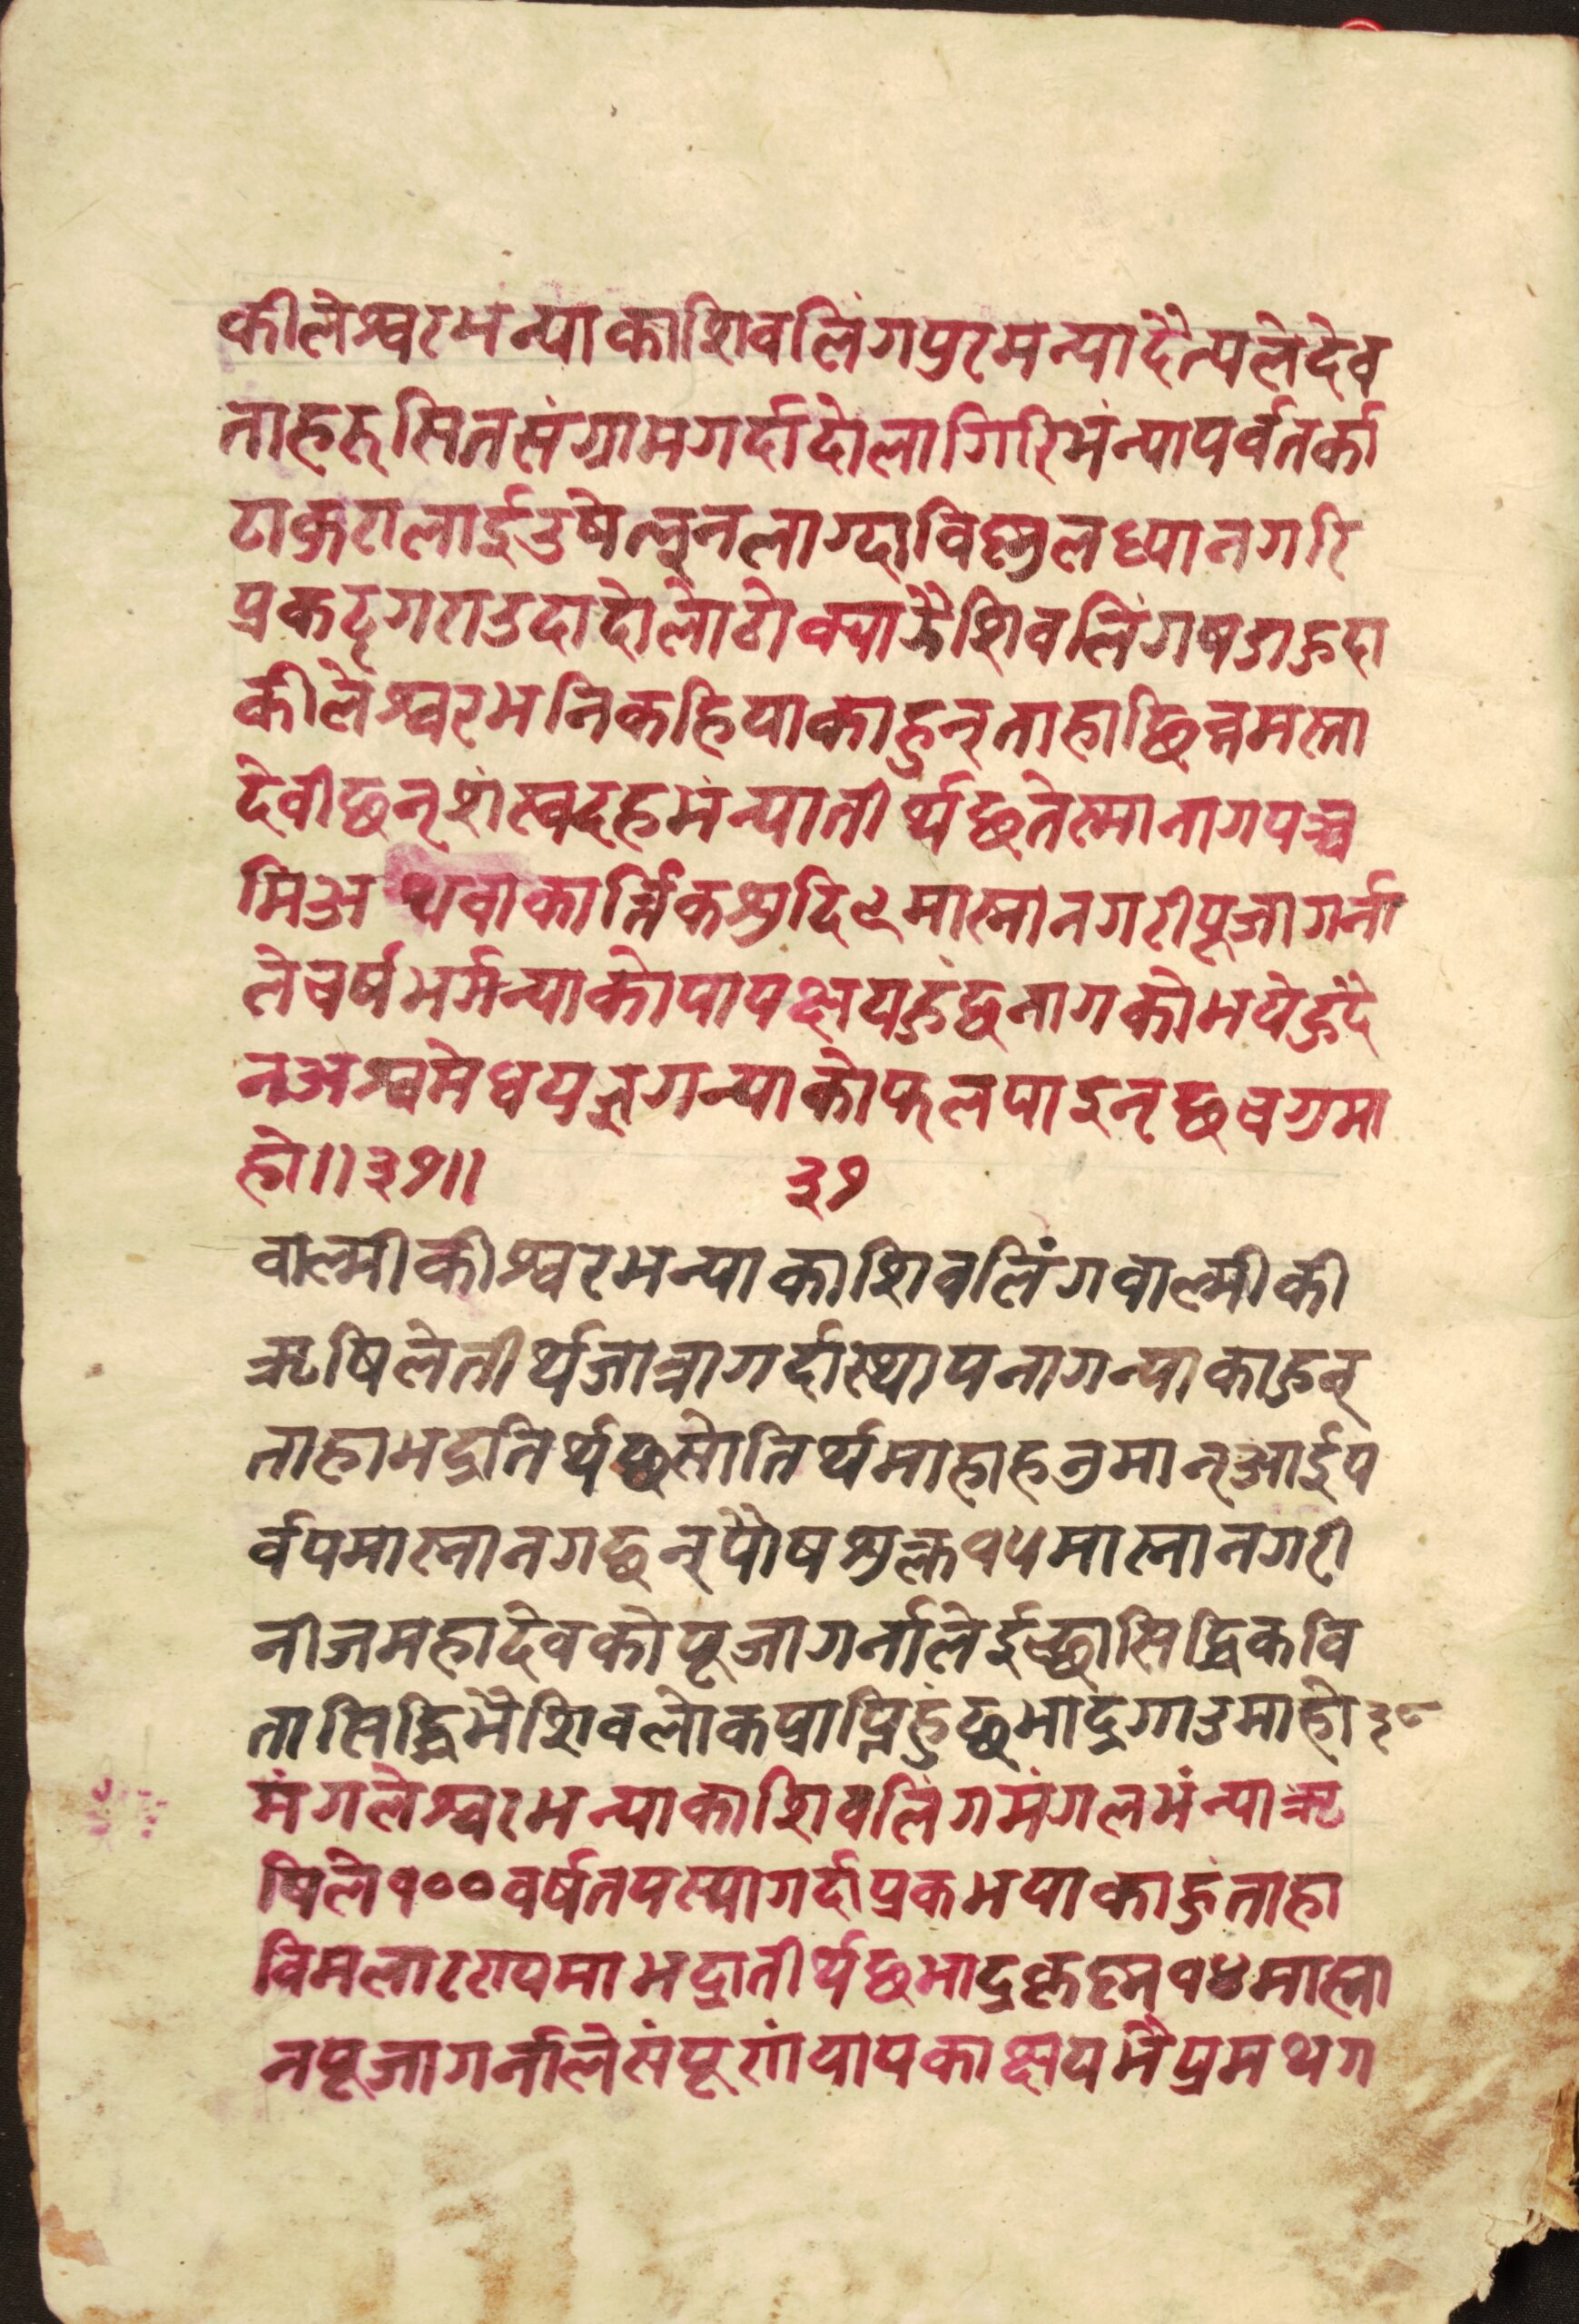 कीलेश्वर भंन्याका शिवलिंग पुर मन्यां दैत्यले देव
ताहरु सित संग्राम गर्दा दोलागिरि भंन्या पर्वतको
टाकुरालाई उषेलून लाग्दा विष्णुल ध्यान गरि
प्रकट् गराउदा दोलो ठोक्याझै शिवलिंग षडा हुदा
कीलेश्वर भनि कहियाका हुन् ताहा छिन्नमस्ता
देवी छन् शंखदह भंन्या तीर्थ छ तेस्मा नागपञ्च
मि अथवा कार्त्तिक शुदि ९ मा स्नान गरी पूजा गर्ना
ले वर्षभर्ग गन्याको पाप क्षय हुंछ नागको भये हुंदै
न अश्वमेध यज्ञ गन्याको फल पाइन्छ बगुमा
हो ॥ ३७ ॥ ३७
वाल्मीकीश्वर भन्याका शिवलिंग वाल्मीकी
ऋषिले तीर्थजात्रा गर्दा स्थापना गन्याका हुन्
ताहा भद्रा तिर्थ छ सो तिर्थमाहा हनुमान् आई प
र्वपमा स्नान गछन् पौष शुक्ल १५ मा स्नान गरी
नीज महादेवको पूजा गर्नाले ईच्छासिद्धि कवि
तासिद्धि भै शिवलोक प्राप्ति हुंछ भाद्गाउमा हो ३८
मंगलेश्वर भन्याका शिवलिंग मंगल भंन्या ऋ
षिले १०० वर्ष तपस्या गर्दा प्रक भयाका हुं ताहा
विमला रोपमा भद्रातीर्थ छ भाद्र कृष्ण १४ मा स्ना
न पूजा गर्नाले संपूर्ण पापका क्षय भै प्रमथग